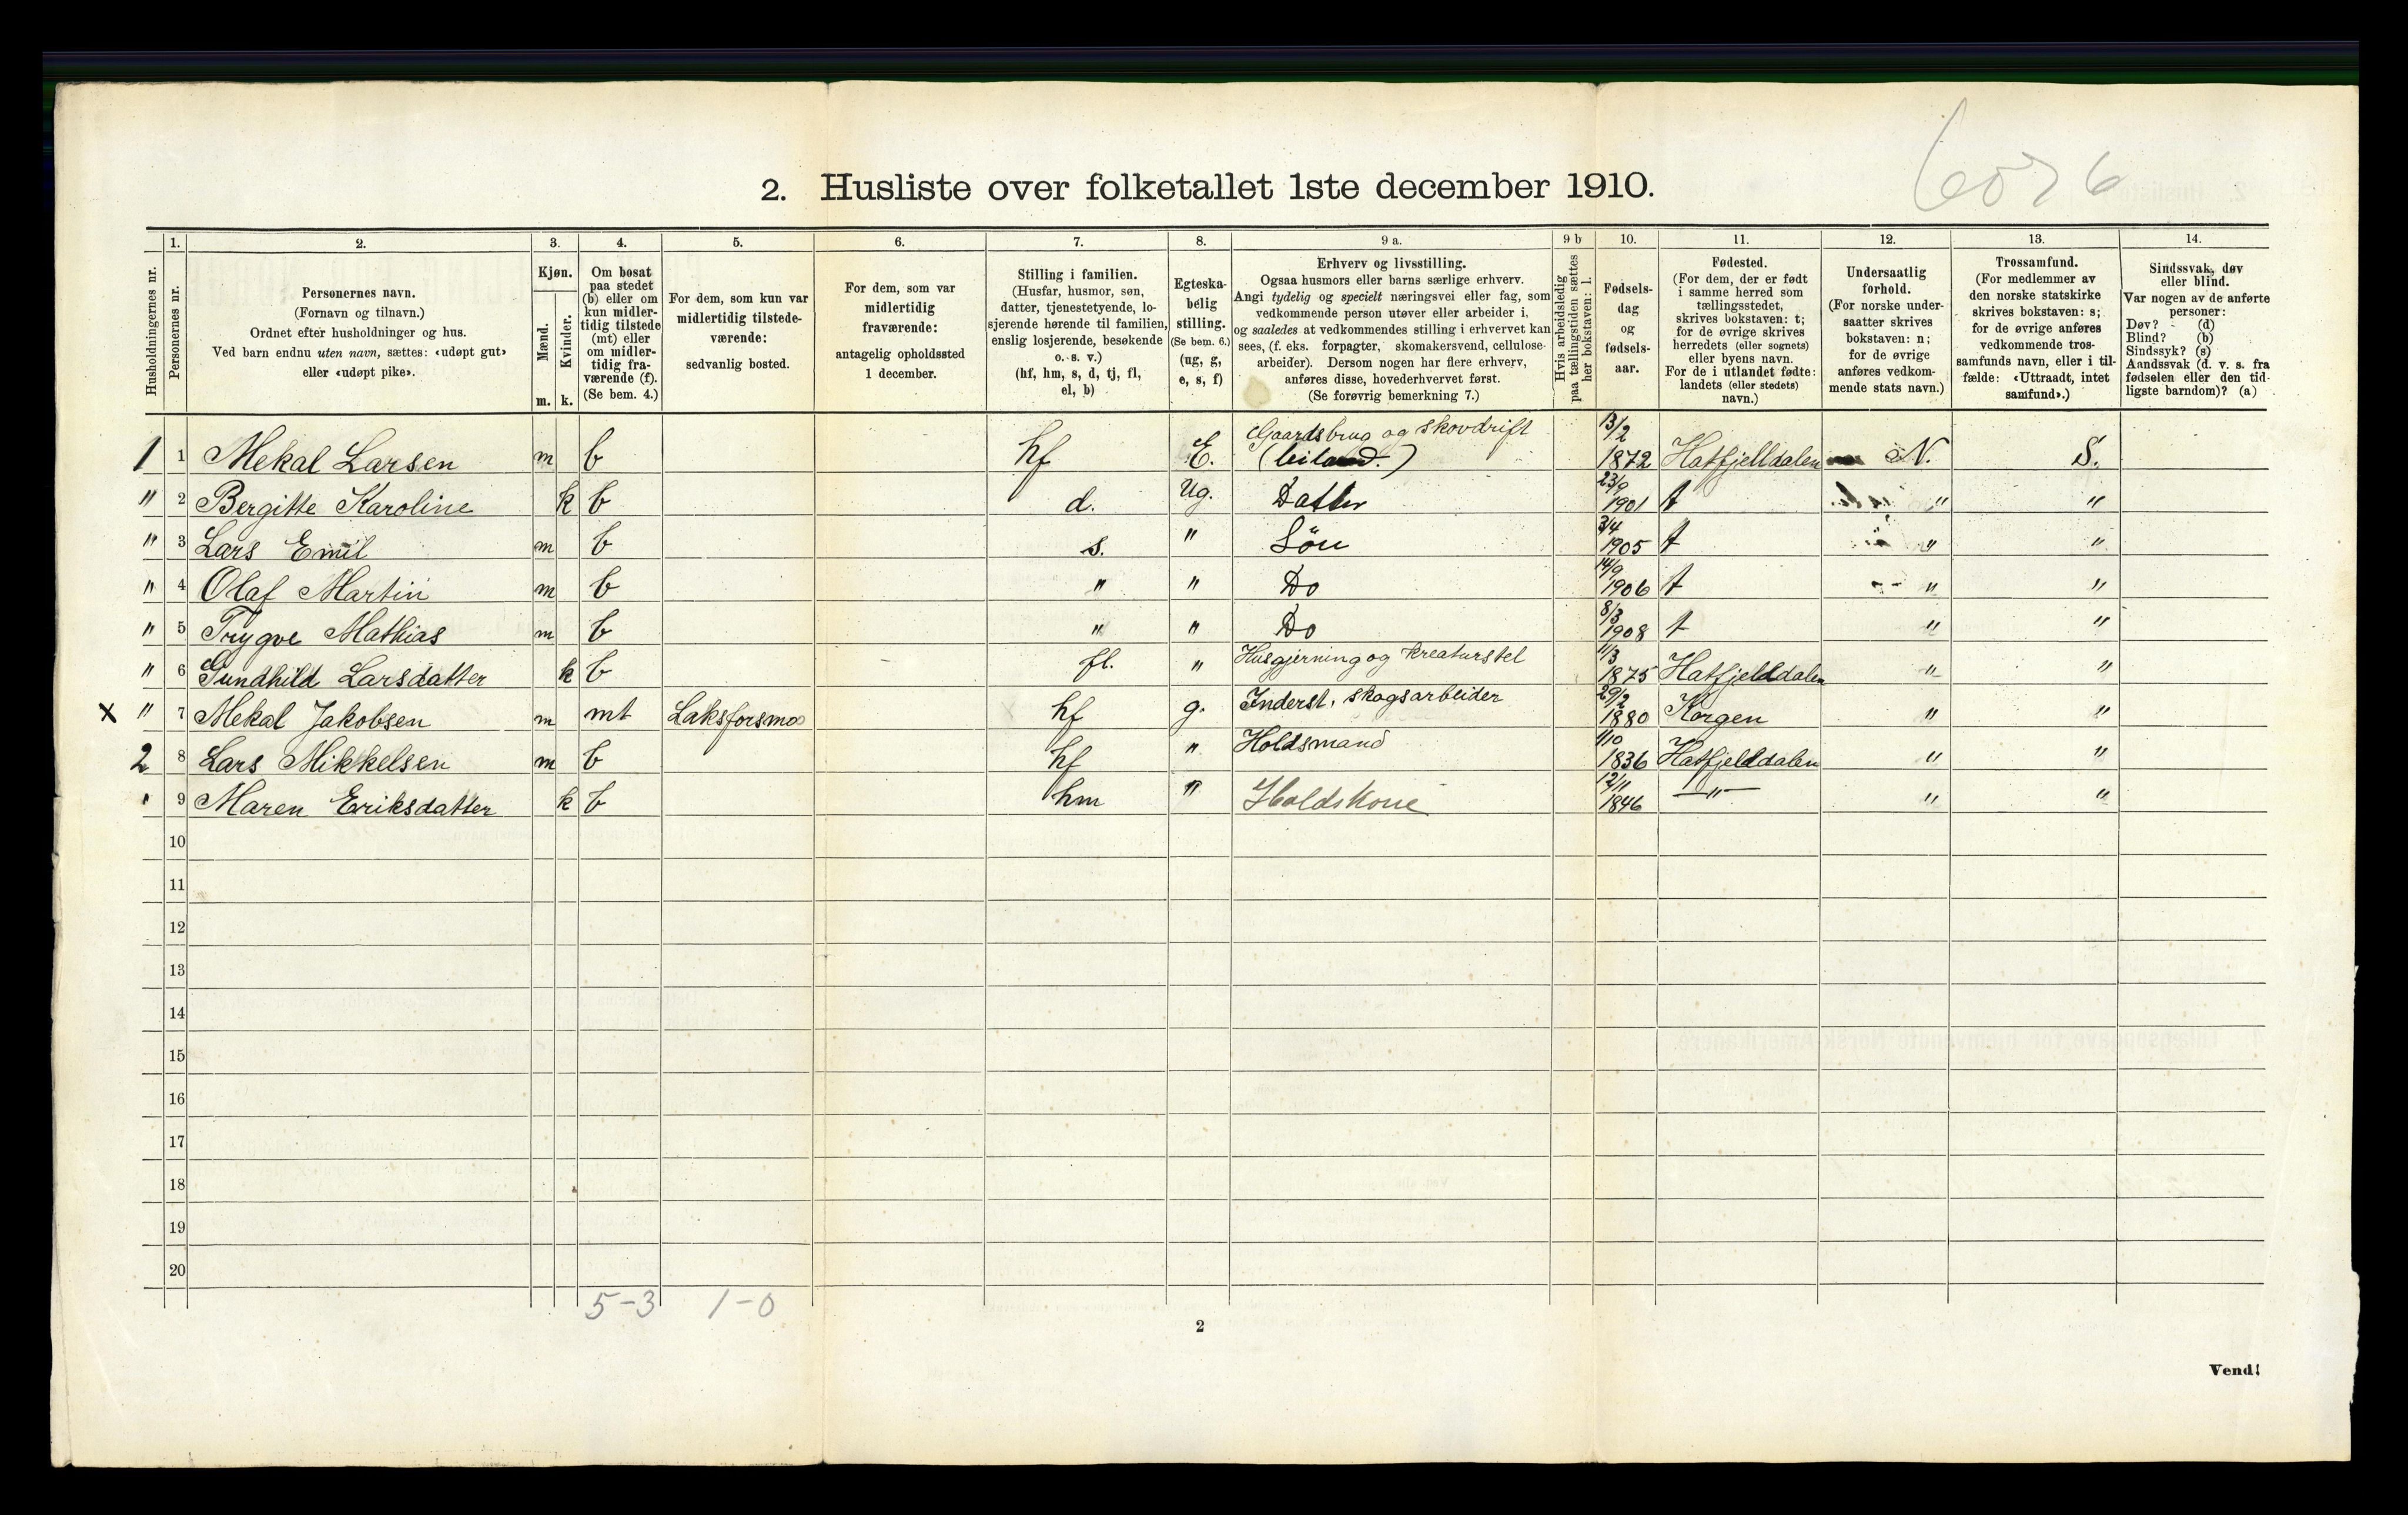 6076
2. Husliste over folketallet 1ste december 1910.
1. 2. 3. 4. 5. 6. 7. 8. 9 a. 9 b 10. 11. 12. 13. 14.
Husholdningernes nr.
Personernes nr.
Personernes navn.
(Fornavn og tilnavn.)
Ordnet efter husholdninger og hus.
Ved barn endnu uten navn, sættes: «udøpt gut»
eller «udøpt pike».
Kjøn.
Mænd.
Kvinder.
m. k.
Om bosat
paa stedet
(b) eller om
kun midler-
tidig tilstede
(mt) eller
om midler-
tidig fra-
værende (f).
(Se bem. 4.)
For dem, som kun var
midlertidig tilstede-
værende:
sedvanlig bosted.
For dem, som var
midlertidig
fraværende:
antagelig opholdssted
1 december.
Stilling i familien.
(Husfar, husmor, søn,
datter, tjenestetyende, lo-
sjerende hørende til familien,
enslig losjerende, besøkende
o. s. v.)
(hf, hm, s, d, tj, fl,
el, b)
Egteska-
belig
stilling.
(Se bem. 6.)
(ug, g,
e, s, f)
Erhverv og livsstilling.
Ogsaa husmors eller barns særlige erhverv.
Angi tydelig og specielt næringsvei eller fag, som
vedkommende person utøver eller arbeider i,
og saaledes at vedkommendes stilling i erhvervet kan
sees, (f. eks. forpagter, skomakersvend, cellulose-
arbeider). Dersom nogen har flere erhverv,
anføres disse, hovederhvervet først.
(Se forøvrig bemerkning 7.)
Hvis arbeidsledig
paa tællingstiden sættes
her bokstaven: l.
Fødsels-
dag
og
fødsels-
aar.
Fødested.
(For dem, der er født
i samme herred som
tællingsstedet,
skrives bokstaven: t;
for de øvrige skrives
herredets (eller sognets)
eller byens navn.
For de i utlandet fødte:
landets (eller stedets)
navn.)
Undersaatlig
forhold.
(For norske under-
saatter skrives
bokstaven: n;
for de øvrige
anføres vedkom-
mende stats navn.)
Trossamfund.
(For medlemmer av
den norske statskirke
skrives bokstaven: s;
for de øvrige anføres
vedkommende tros-
samfunds navn, eller i til-
fælde: «Uttraadt, intet
samfund».)
Sindssvak, døv
eller blind.
Var nogen av de anførte
personer:
Døv? (d)
Blind? (b)
Sindssyk? (s)
Aandssvak (d. v. s. fra
fødselen eller den tid-
ligste barndom)? (a)
1 1 Mekal Larsen m b hf E. Gaardsbrug og skovdrift (leiland.) 13/2 1872 Hatfjelldalen N. S.
" 2 Bergitte Karoline k b d. Ug. Datter 23/9 1901 t " "
" 3 Lars Emil m b s. " Sön 3/4 1905 t " "
" 4 Olaf Martin m b " " Do 14/9 1906 t " "
" 5 Trygve Mathias m b " " Do 8/3 1908 t " "
" 6 Gundhild Larsdatter k b fl. " Husgjerning og kreaturstel 11/3 1875 Hatfjelddalen " "
x " 7 Mekal Jakobsen m mt Laksforsmo hf g. Inderst, skogsarbeider 29/2 1880 Korgen " "
2 8 Lars Mikkelsen m b hf " Holdsmand 1/10 1836 Hatfjelddalen " "
" 9 Maren Eriksdatter k b hm " Holdskone 12/11 1846 —"— " "
10
11
12
13
14
15
16
17
18
19
20
5-3 1-0
2
Vend!